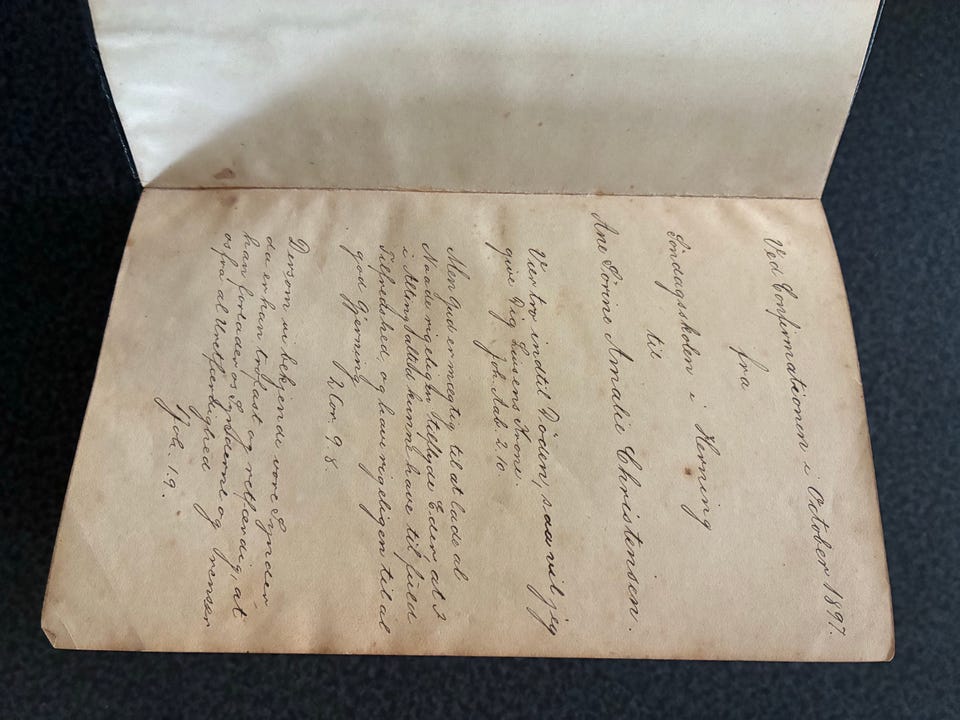 Ved Confirmationen i October 1897.
fra
Söndagsskolen i Herning
til
Ane Sörine Amalie Christensen.
Vær tro indtil Döden, saa vil jeg
give Dig Livsens Krone.
Joh. Aab. 2.10.
Men Gud er mægtig til at lade al
Naade rigeligen tilflyde Eder, at I
i Alting altid kunne have til fuld
Tilfredshed, og have rigeligen til al
god Gjerning.
2 Cor. 9. 8.
Dersom vi bekjende vore Synder
da er han trofast og retfærdig, at
han forlader os Synderne og renser
os fra al Uretfærdighed
Joh. 1.9.